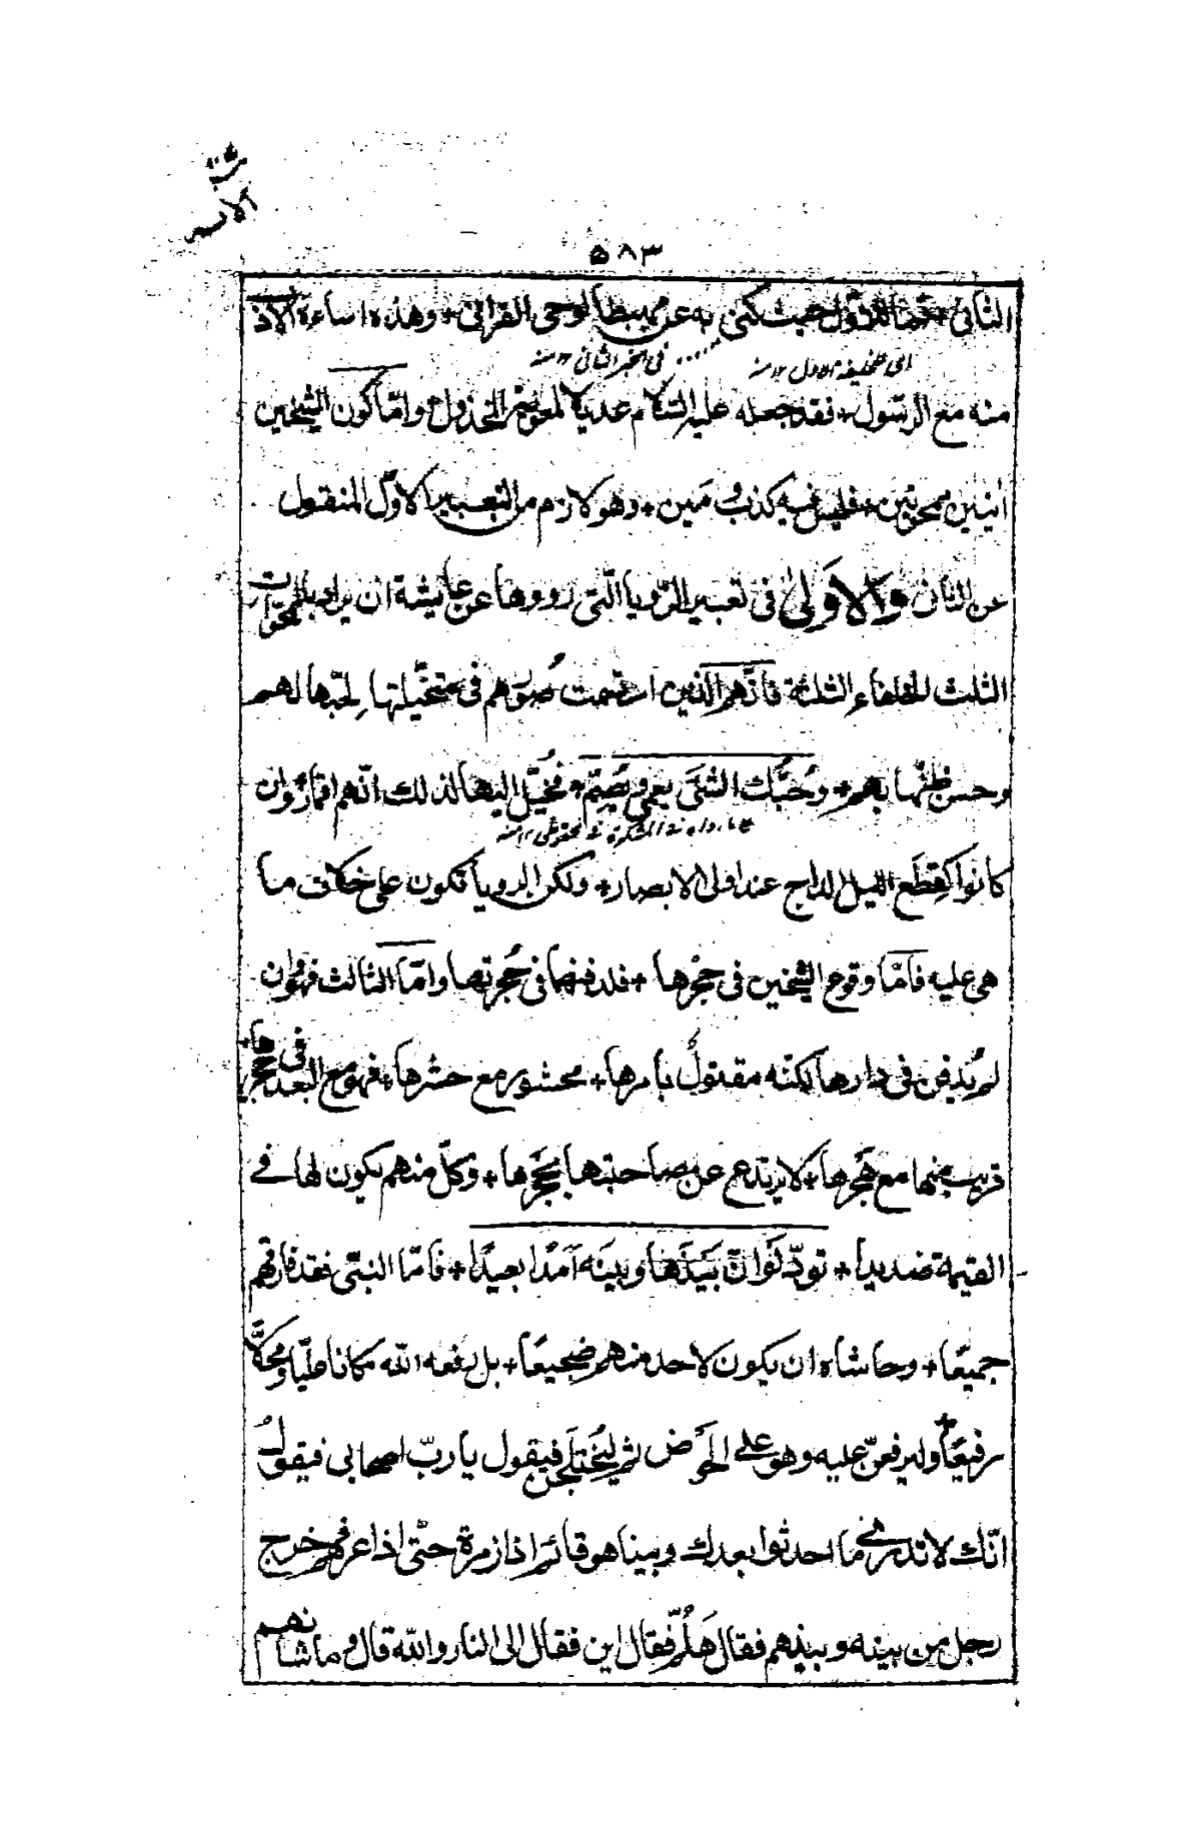 ٥٨٣
الثاني + حيث كنى به عن مهبط الوحي القرآني + وهذه اساءة الادب
الى خليفه الاول ١٢ منه في الخبر الثاني ١٢ منه
منه مع الرسول + فقد جعله عليه السّلام عديلا المخذول + وامّا كون الشيخين
فليس فيه كذب ومَين + وهو لازم من التعبير الاوّل المنقول
عن الثاني وَالاَولىٰ في تعبير الرّويا الّتي رووها عن عايشة ان يراد بالمحوّات
الثلث الخلفاء الثلثة فانّهم الّذين ارتسمت صُوَرهم في متخيّلتها لِحبّها لهم
وحسن ظنّها بهم + وحُبّك الشئَ يعمي ويُصِمّ + فخُيّل اليها لذلك انّهم اقمار وان
كانوا كقِطَع الليل الداج عند اولى الابصار + ولكن الرويا تكون على خلاف ما
هي عليه فامّا وقوع الشيخين في حجرها + فلدفنهما في حُجرتها وامّا الثالث فهو وان
لم يُدفن في دارها لكنّه مقتولٌ بامرها + محشور مع حشرها + فهو مع البعد في حجرها +
قريب منها مع هَجرها + لا يرتدع عن مصاحبتها بحَجرها + وكلّ منهم يكون لها في
القيمة ضديدا + تودّ لَو انّ بَينَها وبينَه اَمَدًا بعيدًا + فامّا النبيّ فقد فارقهم
جميعًا + وحاشاه ان يكون لاحد منهم ضجيعًا + بل رفعه اللّه مكانا عليّا ومحلّا
رفيعًا + وليرفعنّ عليه وهو على الحَوض ثم ليُختلَجن فيقول يا ربّ اصحابي فيقولُ
انّك لا تدري ما احدثوا بعدك وبينا هو قائم اذا زمرة حتّى اذا عرفهم خرج
رجل من بينه وبينهم فقال هَلُمّ فقال اين فقال الى النار واللّه قال وما شانهم